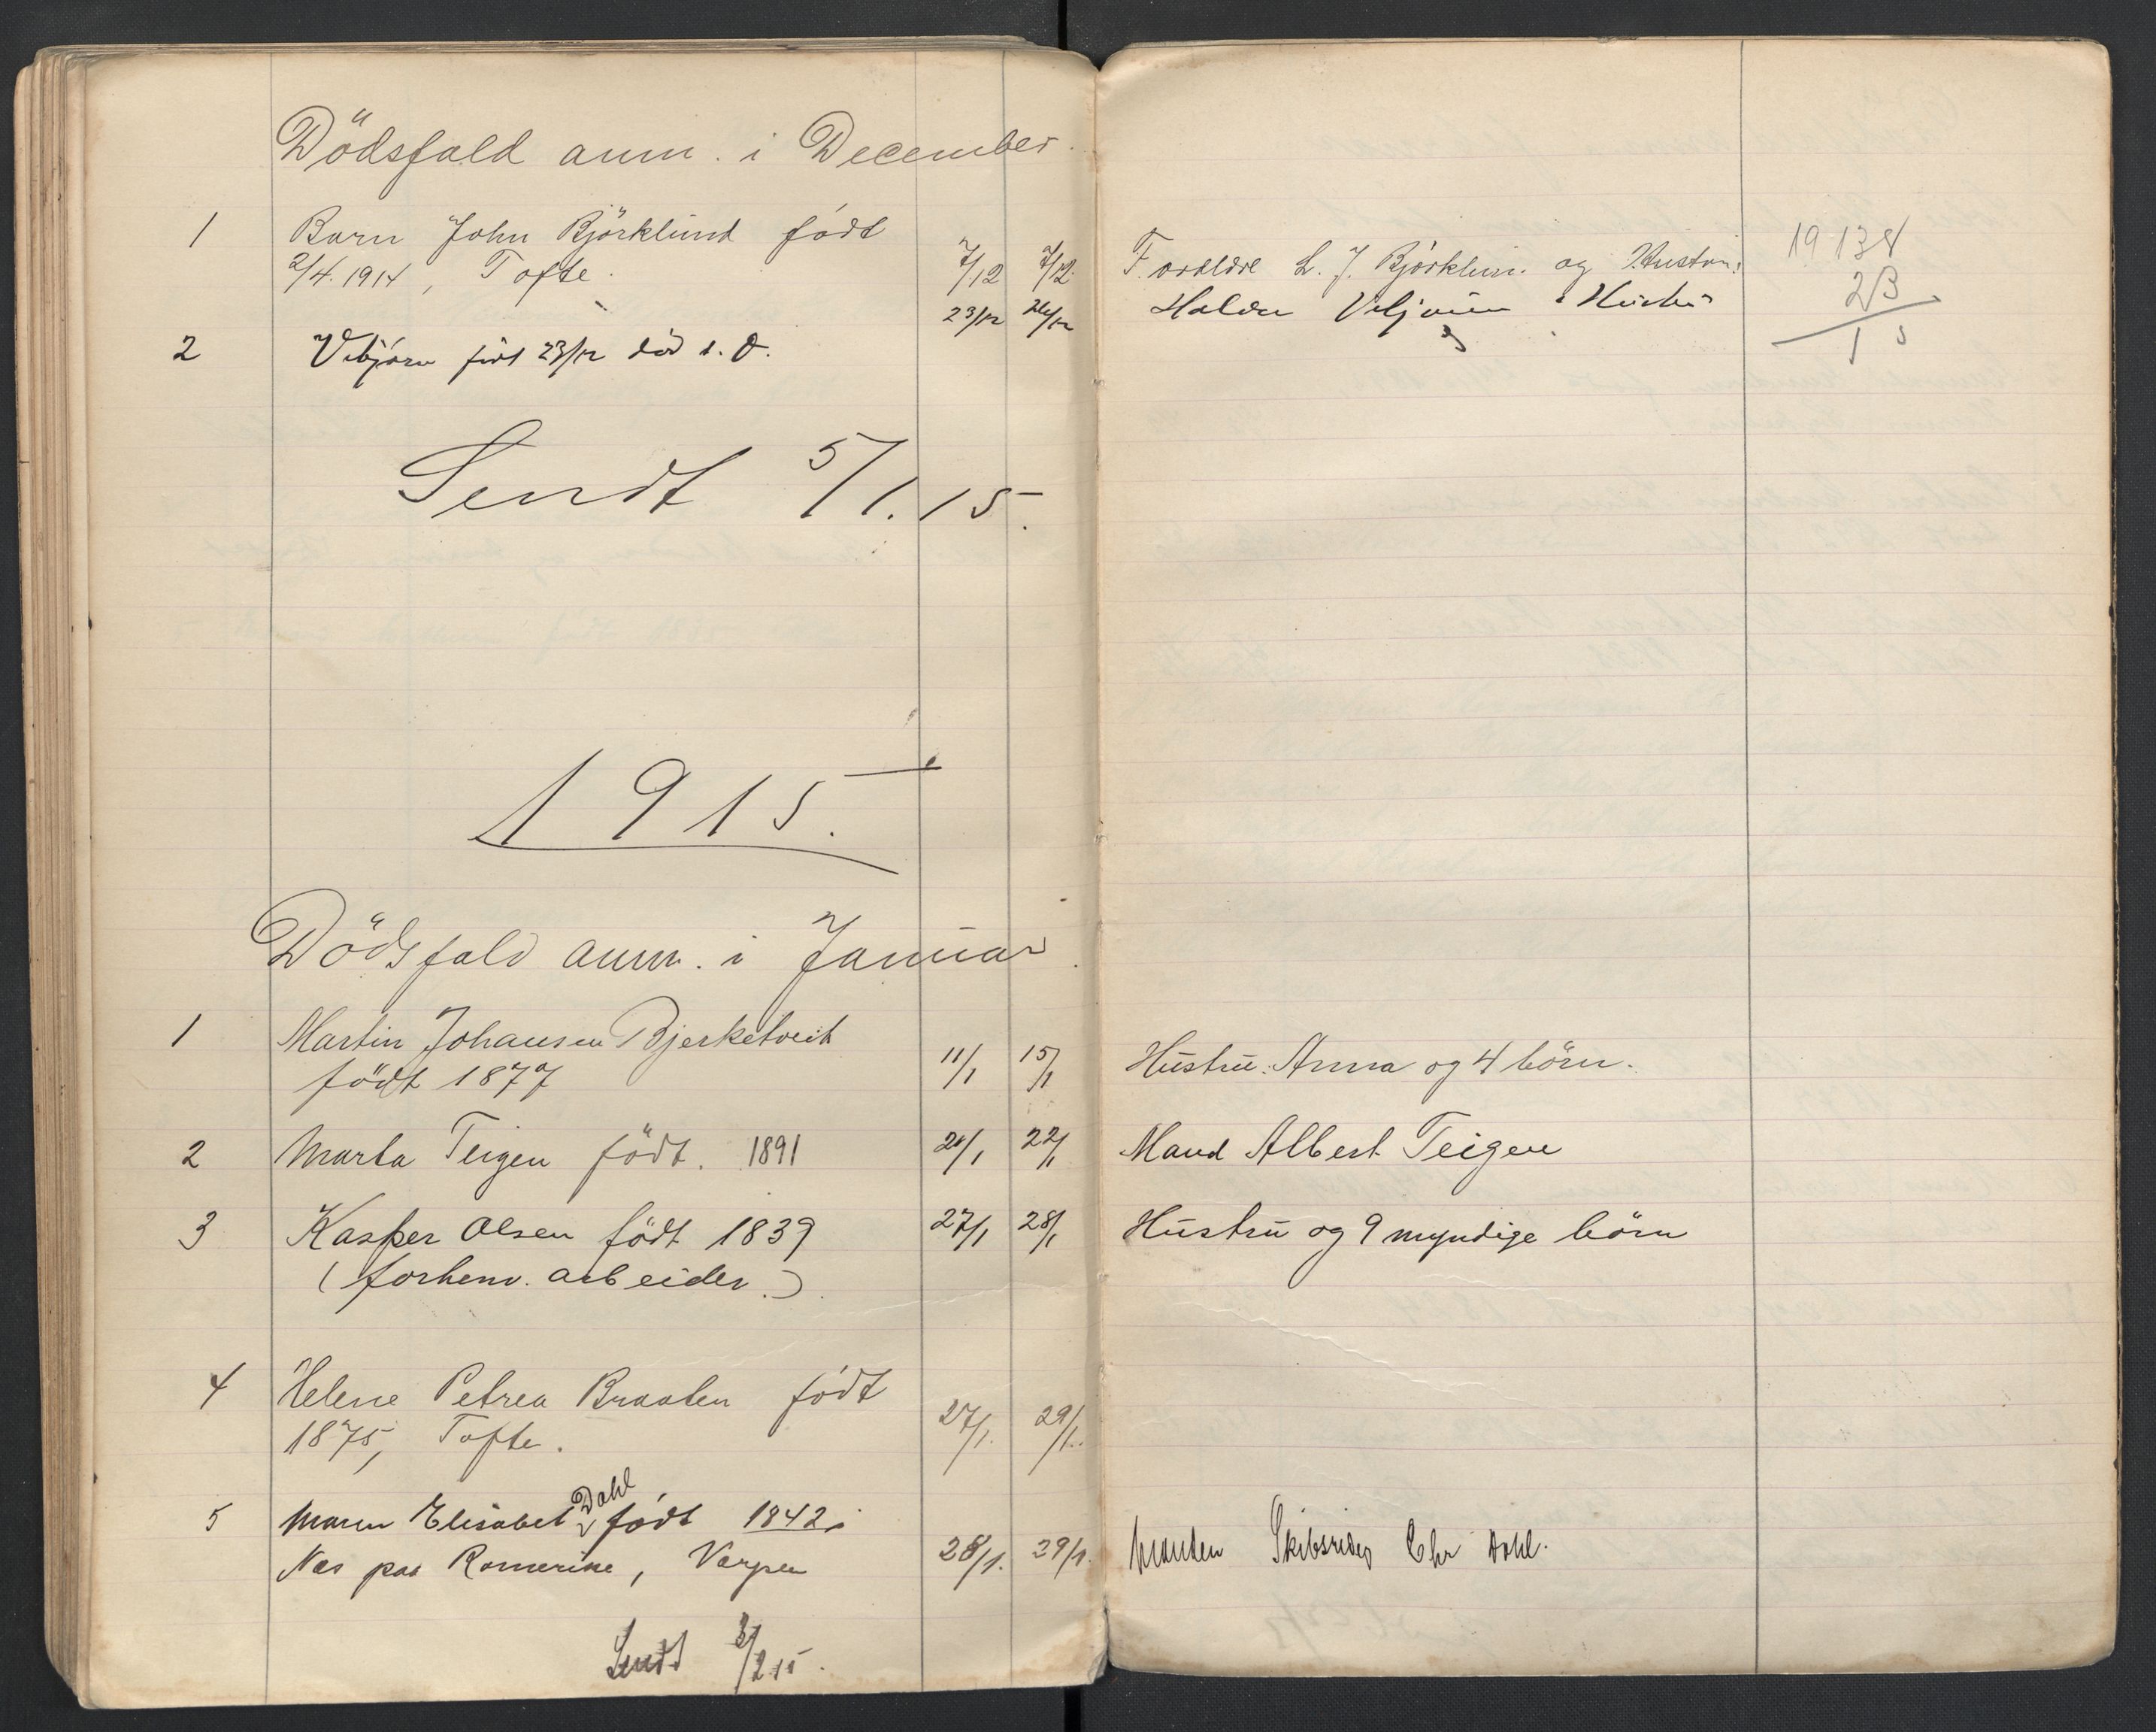 Dödsfald anm. i December.
1 Barn John Björklund födt
2/4. 1914, Tofte. 7/12 7/12. Forældre L. J. Björklun. og Hustru:
23/12 Haldor
2 Vebjörn födt 23/12 död s. D.
19 138
23
1 5
Sendt 5/1. 15.
1915.
Dödsfald anm. i Januar.
1 Martin Johansen Bjerketveit
födt 1877 11/1 15/1 Hustru: Anna og 4 börn.
2 Marta Teigen födt. 1891 22/1 Mand Albert Teigen
3 Kasper Olsen födt 1839 27/1 28/1 Hustru og 9 myndige börn
(forhenv. arbeider.)
4 Helene Petrea Braaten födt
1875, Tofte. 27/1. 29/1.
5 Maren Elisabet Dahl födt 1842 i
Nes paa Romerike, Verpen 28/1. 29/1. Manden Skibsreder Chr Dahl.
Sendt 3/2 15.